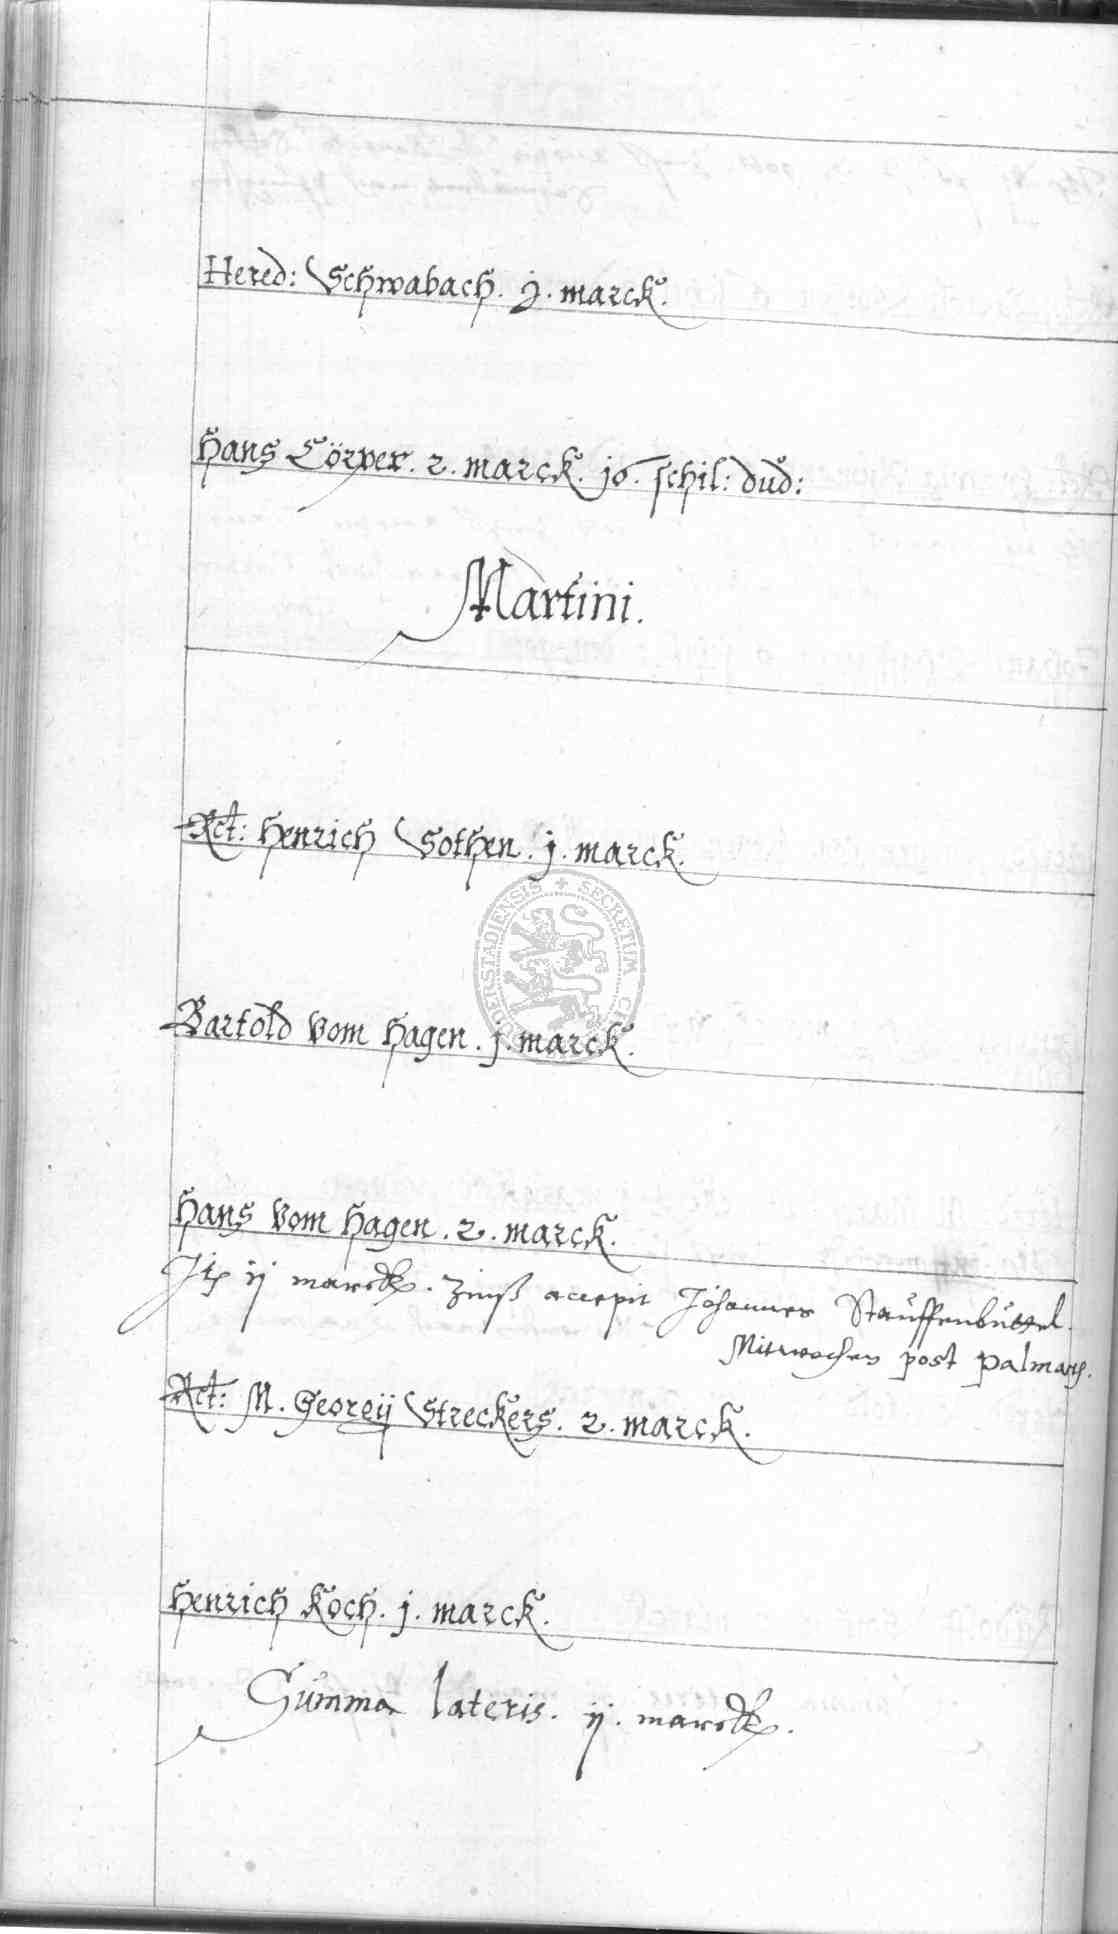 Hered: Schwabach. j. marck.
Hans Cörver. 2. marck. 16. schil: dud:
Martini.
Rct: Henrich Sothen. j. marck.
SECRETUM
Bartold vom Hagen. j. marck.
Hans vom Hagen. 2. marck.
ij marck. Zinß accepit Johannes Stauffenbüttel.
Mitwochen post Palmarum.
Rct: M. Georgij Streckers. 2. marck.
Henrich Koch. j. marck.
Summa lateris. ij. marck.